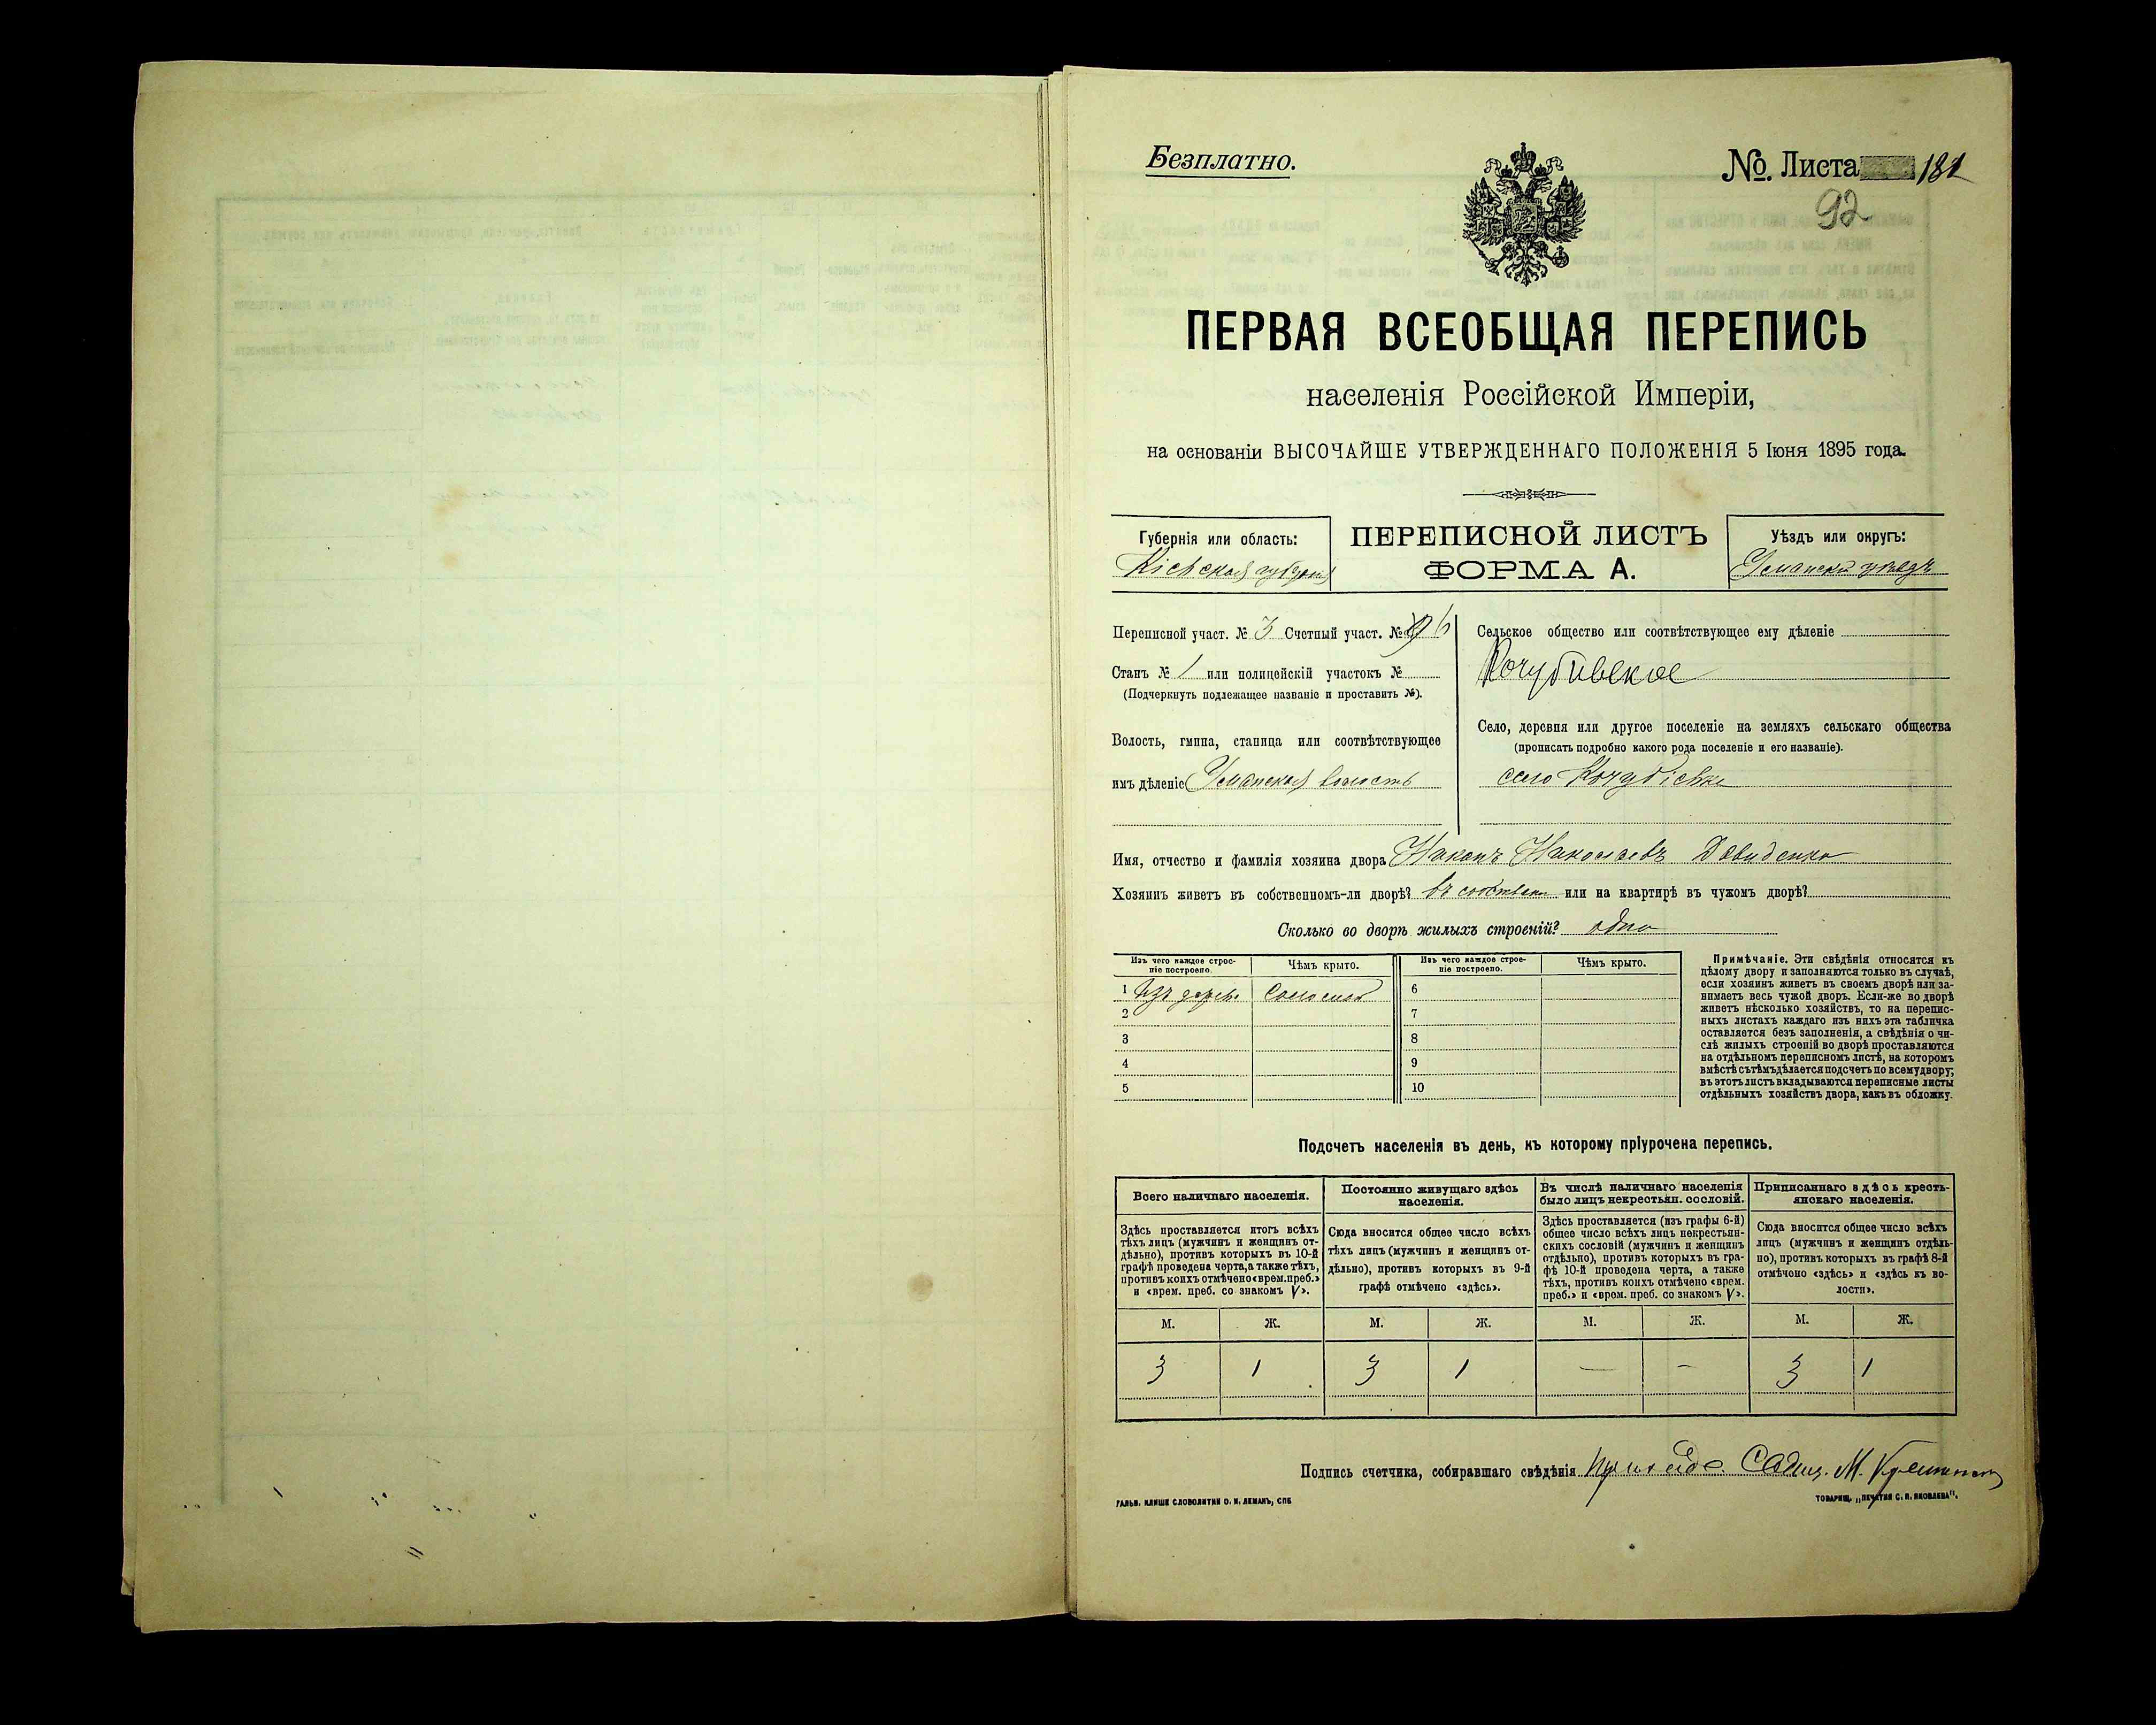 Безплатно.
№. Листа 181
92
ПЕРВАЯ ВСЕОБЩАЯ ПЕРЕПИСЬ
населенія Россійской Имперіи,
на основаніи ВЫСОЧАЙШЕ УТВЕРЖДЕННАГО ПОЛОЖЕНІЯ 5 Іюня 1895 года.
Губернія или область:
Кіевская губернія
ПЕРЕПИСНОЙ ЛИСТЪ
ФОРМА А.
Уѣздъ или округъ:
Уманскій уѣздъ
Переписной участ. № 3 Счетный участ. № 6
Станъ № 1 или полицейскій участокъ №
(Подчеркнуть подлежащее названіе и проставить №).
Волость, гмина, станица или соотвѣтствующее
имъ дѣленіе Уманская волость
Сельское общество или соотвѣтствующее ему дѣленіе
Кочубивское
Село, деревня или другое поселеніе на земляхъ сельскаго общества
(прописать подробно какого рода поселеніе и его названіе).
село Кочубіевка
Имя, отчество и фамилія хозяина двора Николаевъ Давиденко
Хозяинъ живетъ въ собственномъ-ли дворѣ? въ собствен. или на квартирѣ въ чужомъ дворѣ?
Сколько во дворѣ жилыхъ строеній? одно
Изъ чего каждое строе-
ніе построено.
Чѣмъ крыто.
Изъ чего каждое строе-
ніе построено.
Чѣмъ крыто.
1 Изъ дерева Соломой 6
2 7
3 8
4 9
5 10
Примѣчаніе. Эти свѣдѣнія относятся къ
цѣлому двору и заполняются только въ случаѣ,
если хозяинъ живетъ въ своемъ дворѣ или за-
нимаетъ весь чужой дворъ. Если-же во дворѣ
живетъ нѣсколько хозяйствъ, то на перепис-
ныхъ листахъ каждаго изъ нихъ эта табличка
оставляется безъ заполненія, а свѣдѣнія о чи-
слѣ жилыхъ строеній во дворѣ проставляются
на отдѣльномъ переписномъ листѣ, на которомъ
вмѣстѣ съ тѣмъ дѣлается подсчетъ по всему двору;
въ этотъ листъ вкладываются переписные листы
отдѣльныхъ хозяйствъ двора, какъ въ обложку.
Подсчетъ населенія въ день, къ которому пріурочена перепись.
Всего наличнаго населенія.
Здѣсь проставляется итогъ всѣхъ
тѣхъ лицъ (мужчинъ и женщинъ от-
дѣльно), противъ которыхъ въ 10-й
графѣ проведена черта, а также тѣхъ,
противъ коихъ отмѣчено «врем. преб.»
и «врем. преб. со знакомъ V».
Постоянно живущаго здѣсь
населенія.
Сюда вносится общее число всѣхъ
тѣхъ лицъ (мужчинъ и женщинъ от-
дѣльно), противъ которыхъ въ 9-й
графѣ отмѣчено «здѣсь».
Въ числѣ наличнаго населенія
было лицъ некрестьян. сословій.
Здѣсь проставляется (изъ графы 6-й)
общее число всѣхъ лицъ некрестьян-
скихъ сословій (мужчинъ и женщинъ
отдѣльно), противъ которыхъ въ гра-
фѣ 10-й проведена черта, а также
тѣхъ, противъ коихъ отмѣчено «врем.
преб.» и «врем. преб. со знакомъ V».
Приписаннаго здѣсь кресть-
янскаго населенія.
Сюда вносится общее число всѣхъ
лицъ (мужчинъ и женщинъ отдѣль-
но), противъ которыхъ въ графѣ 8-й
отмѣчено «здѣсь» и «здѣсь къ во-
лости».
М. Ж. М. Ж. М. Ж. М. Ж.
3 1 3 1 — — 3 1
Подпись счетчика, собиравшаго свѣдѣнія
ГАЛЬВ. КЛИШЕ СЛОВОЛИТНИ О. И. ЛЕМАНЪ, СПБ
ТОВАРИЩ. „ПЕЧАТНЯ С. П. ЯКОВЛЕВА".